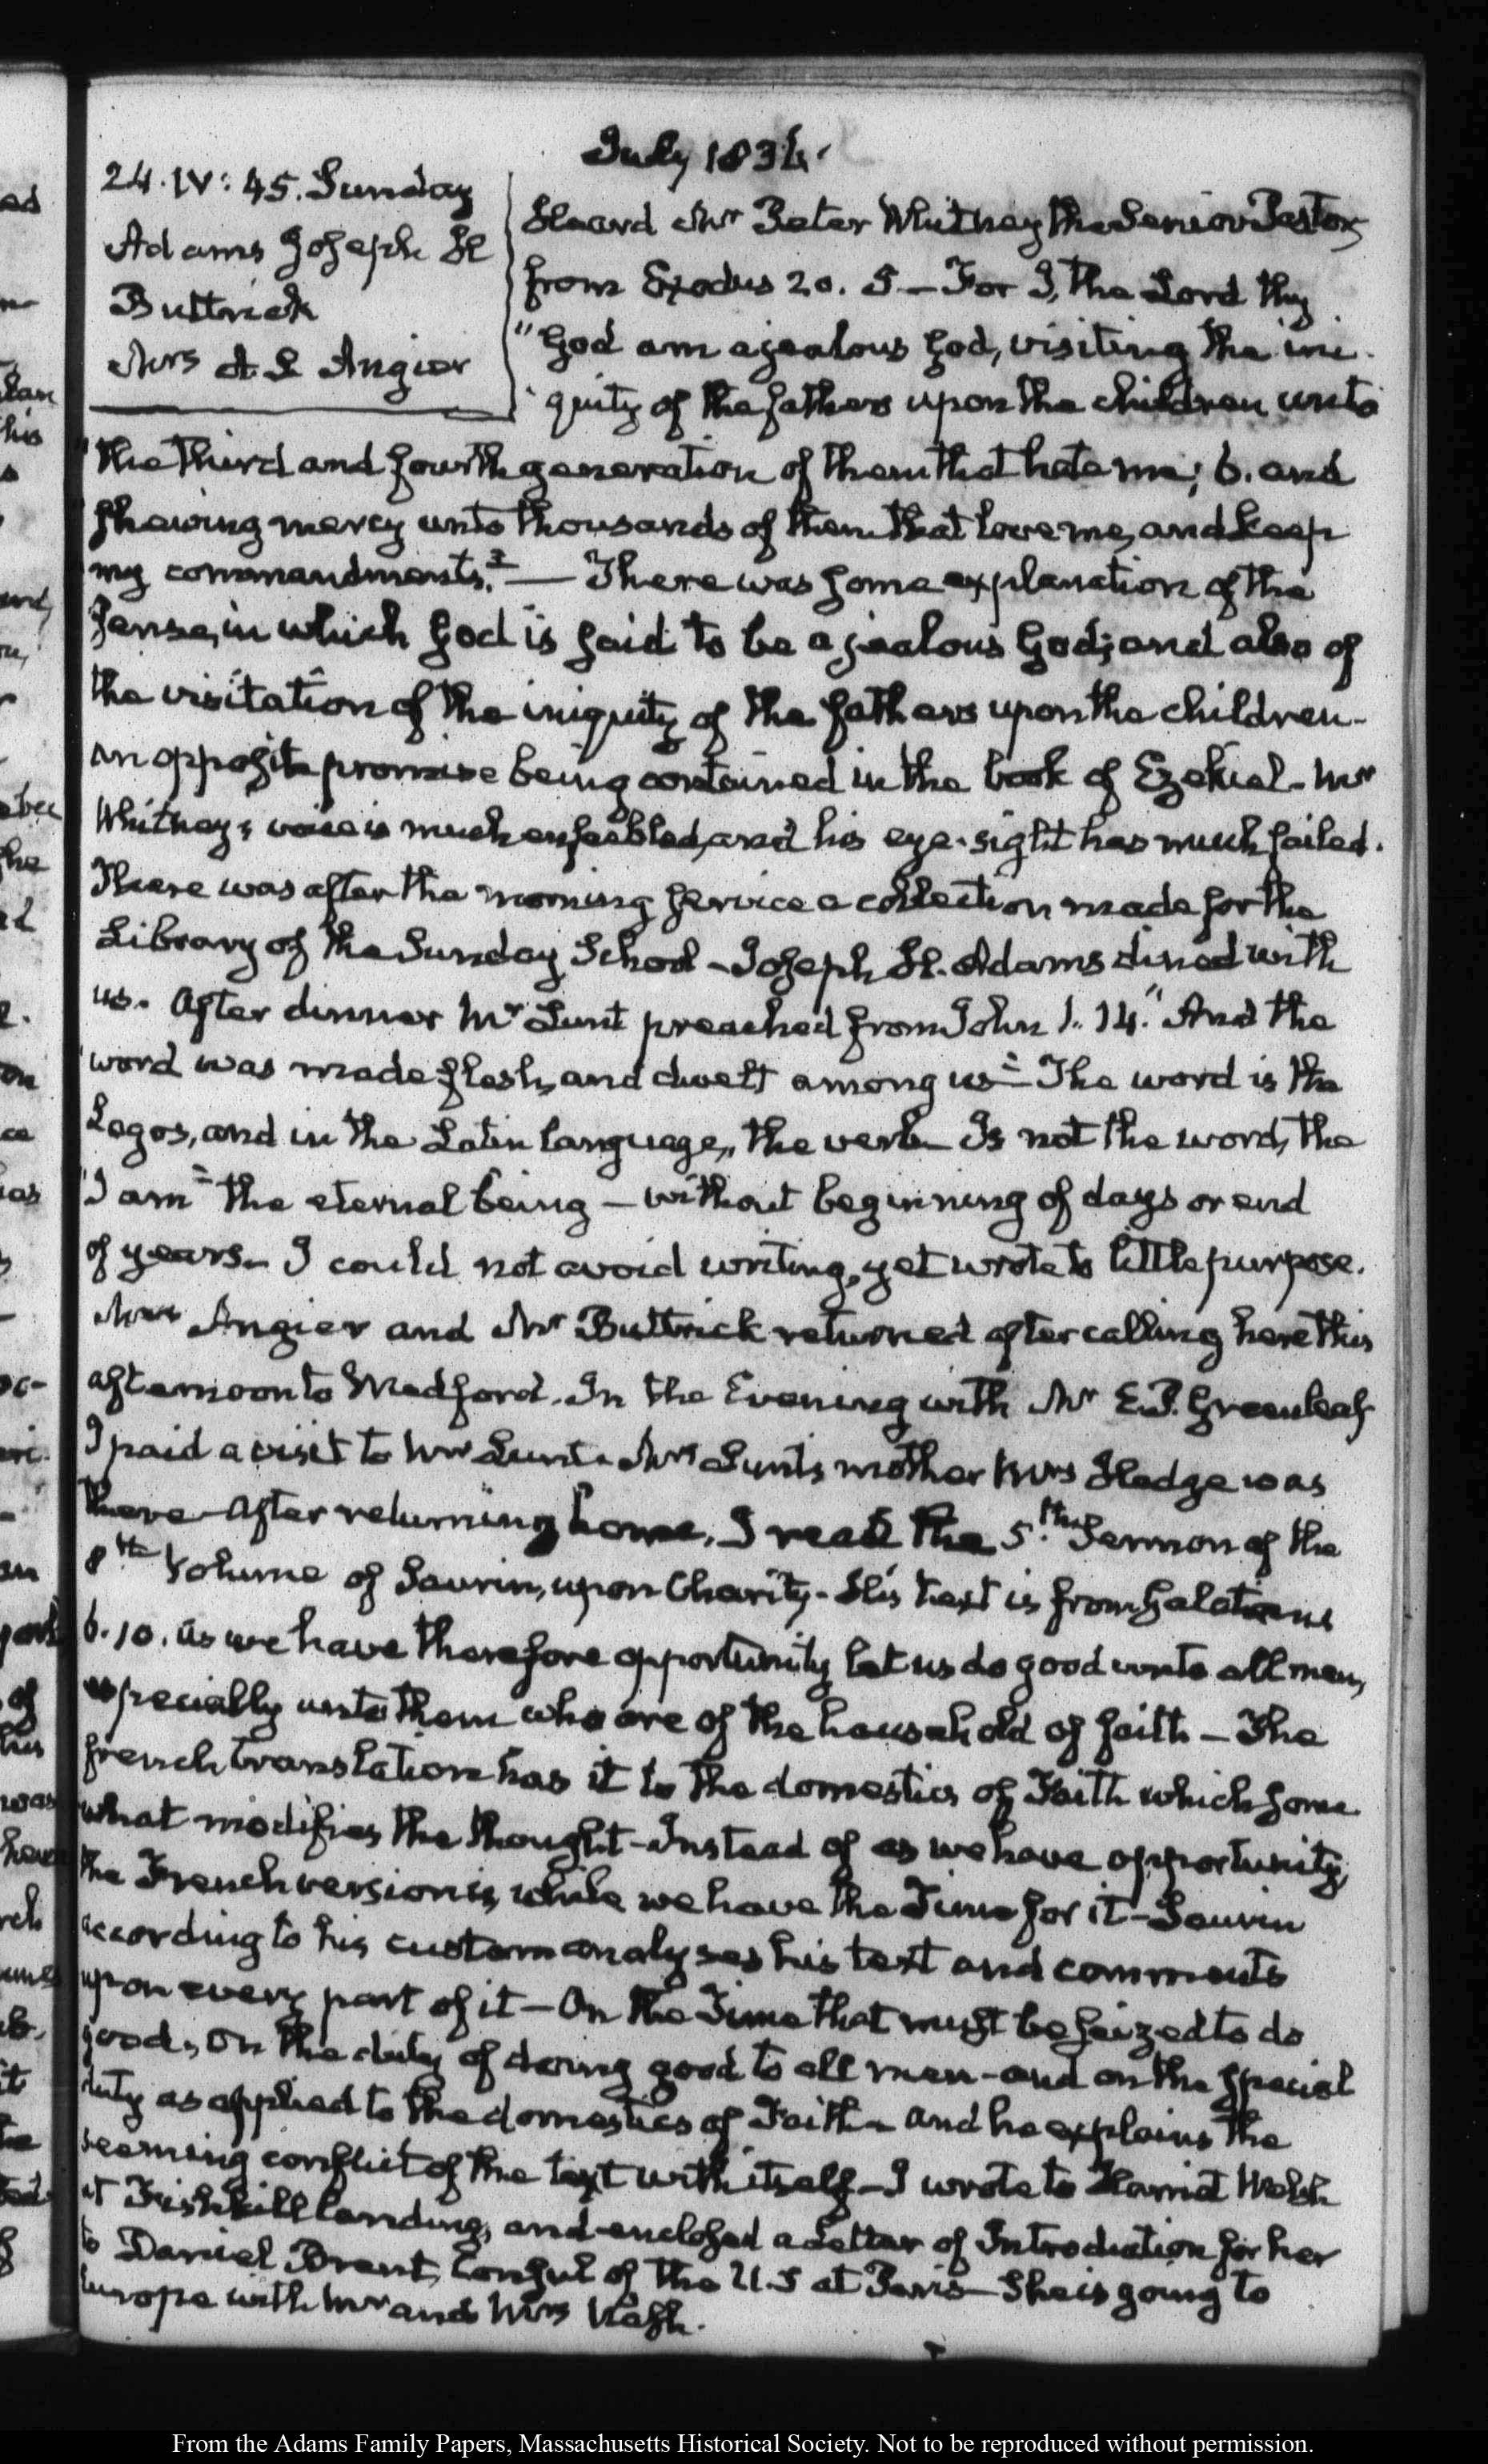 July 1836.
24. IV: 45. Sunday
Adams Joseph H
Buttrick
Mrs A L Angier
Heard Mr Peter Whitney the Senior Pastor,
from Exodus 20. 5 — For I, the Lord thy
"God am a jealous God, visiting the ini-
"quity of the fathers upon the children unto
"the third and fourth generation of them that hate me; 6. and
shewing mercy unto thousands of them that love me, and keep
my commandments." — There was some explanation of the
sense, in which God is said to be a jealous God; and also of
the visitation of the iniquity of the fathers upon the children-
an opposite promise being contained in the book of Ezekiel - Mr
Whitney's voice is much enfeebled, and his eye-sight has much failed.
There was after the morning service a collection made for the
Library of the Sunday School - Joseph H. Adams dined with
us. After dinner Mr Lunt preached from John 1. 14. "And the
word was made flesh, and dwelt among us" The word is the
Logos, and in the Latin language, the verb - Is not the word, the
"I am" the eternal being — without beginning of days or end
of years - I could not avoid writing, yet wrote to little purpose.
Mrs Angier and Mr Buttrick returned after calling here this
afternoon to Medford. In the Evening with Mr E. P. Greenleaf
I paid a visit to Mr Lunt. Mrs Lunt's mother Mrs Hedge was
there - After returning home, I read the 5th Sermon of the
8th Volume of Saurin, upon Charity - His text is from Galatians
6. 10. as we have therefore opportunity let us do good unto all men,
especially unto them who are of the household of faith — The
french translation has it to the domestics of Faith which some
what modifies the thought - Instead of as we have opportunity,
the French version is, while we have the Time for it - Saurin
according to his custom analyses his text and comments
upon every part of it — On the Time that must be seized to do
good, on the duty of doing good to all men - and on the special
duty as applied to the domestics of Faith - and he explains the
seeming conflict of the text with itself - I wrote to Harriet Welsh
at Fishkill landing, and enclosed a Letter of Introduction for her
to Daniel Brent, Consul of the U. S at Paris - She is going to
Europe with Mr and Mrs
From the Adams Family Papers, Massachusetts Historical Society. Not to be reproduced without permission.